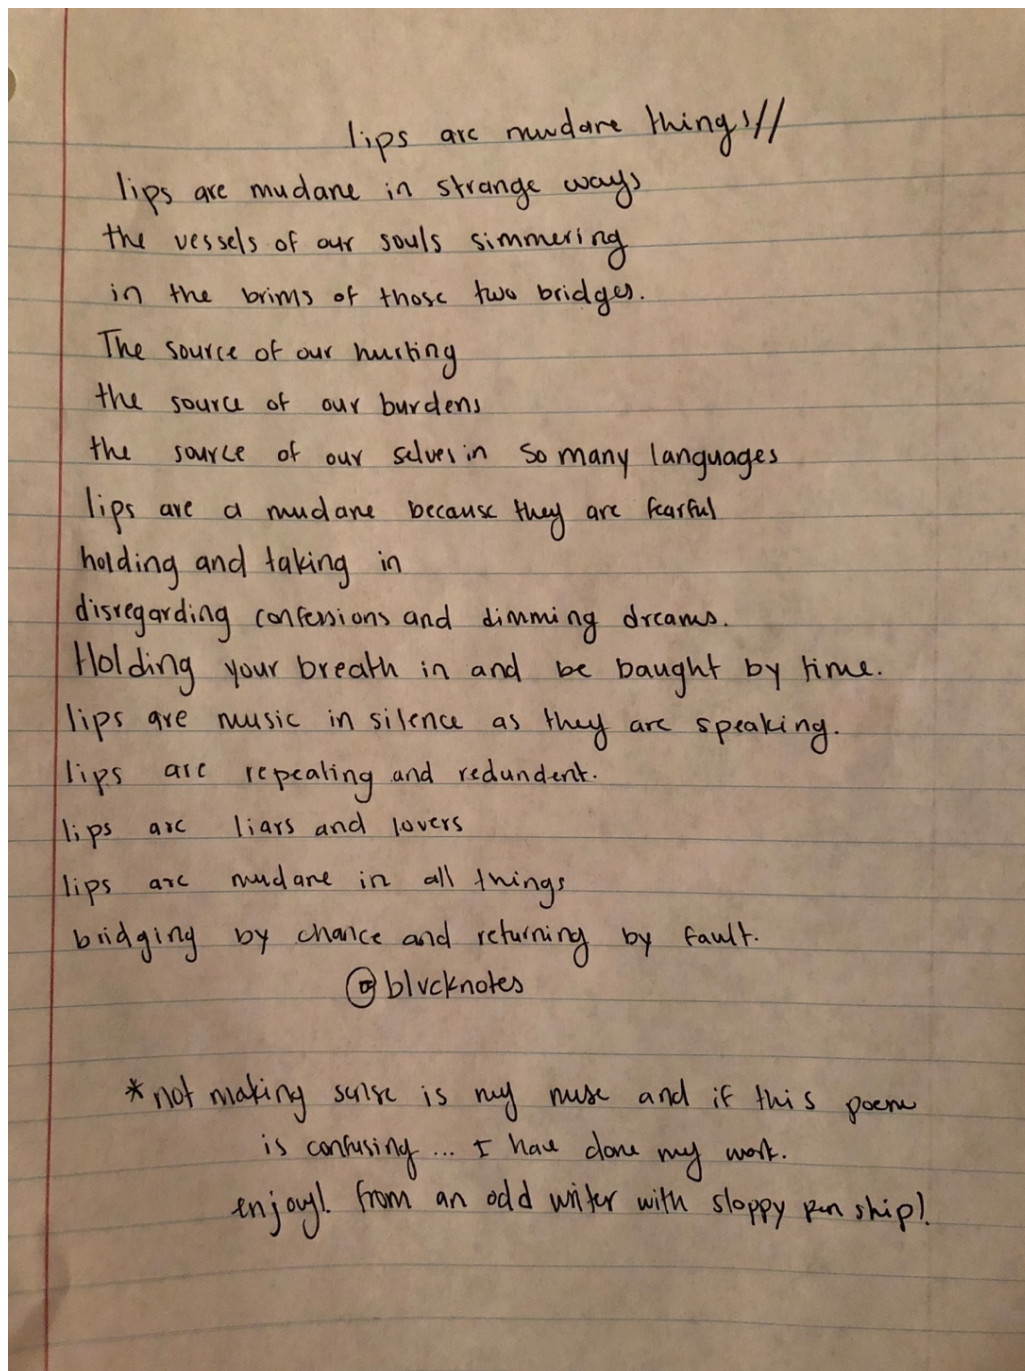 lips are mudane things//
lips are mudane in strange ways
the vessels of our souls simmering
in the brims of those two bridges.
The source of our hurting
the source of our burdens
the source of our selves in so many languages
lips are a mudane because they are fearful
holding and taking in
disregarding confessions and dimming dreams.
Holding your breath in and be baught by time.
lips are music in silence as they are speaking.
lips are repeating and redundent.
lips are liars and lovers
lips are mudane in all things
bridging by chance and returning by fault.
@blvcknotes
*not making sense is my muse and if this poem
is confusing... I have done my work.
enjoy! from an odd writer with sloppy pen ship!